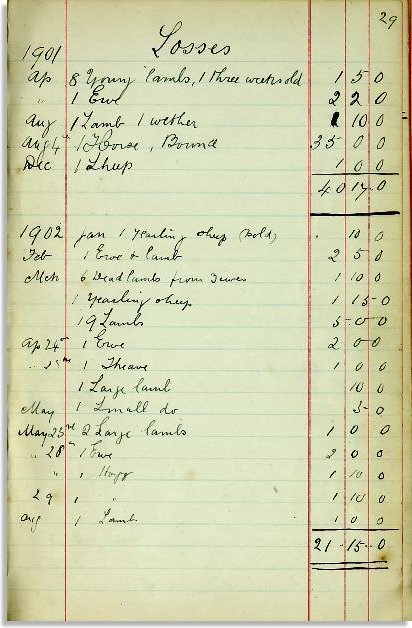 29
Losses
1901
Ap 8 Young lambs, 1 three weeks old 1 5 0
" 1 Ewe 2 2 0
Aug 1 Lamb 1 wether 1 10 0
Aug 4th 1 Horse, 35 0 0
Dec 1 Sheep 1 0 0
40 17 0
1902 Jan 1 Yearling sheep (Cold) 10 0
Feb 1 Ewe & lamb 2 5 0
Mch 6 Dead lambs from 3 ewes 1 10 0
1 Yearling sheep 1 15 0
19 Lambs 5 0 0
Ap 24th 1 Ewe 2 0 0
" 25th 1 Theave 1 0 0
1 Large lamb 10 0
May 1 Small do 5 0
May 23rd 2 Large lambs 1 0 0
" 28th 1 Ewe 2 0 0
" 1 Hogg 1 10 0
29 1 " 1 10 0
Aug 1 Lamb 1 0 0
21 15 0